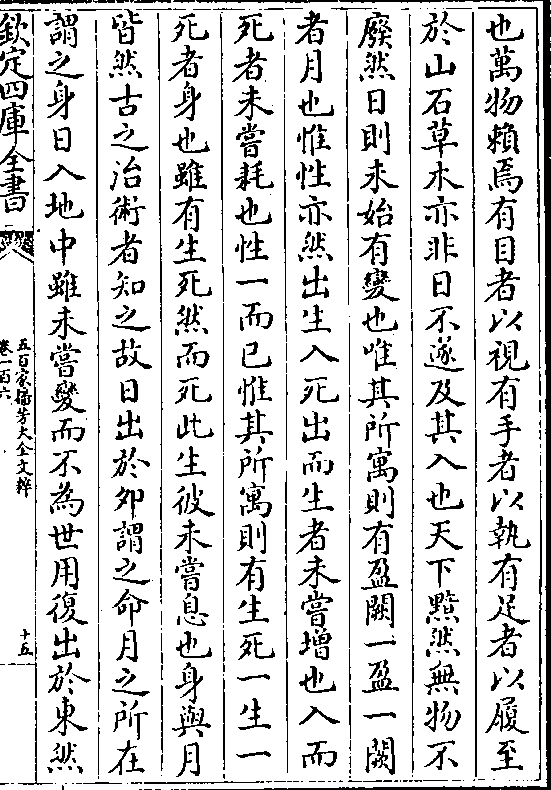 也萬物賴焉有目者以視有手者以執有足者以履至
於山石草木亦非日不遂及其入也天下黯然無物不
廢然日則未始有變也唯其所寓則有盈闕一盈一闕
者月也惟性亦然出生入死出而生者未嘗增也入而
死者未嘗耗也性一而已惟其所寓則有生死一生一
死者身也雖有生死然而死此生彼未嘗息也身與月
皆然古之治術者知之故日出於夘謂之命月之所在
謂之身日入地中雖未嘗變而不為世用復出於東然
欽定四庫全書
五百家播芳大全文粹
卷一百六
十五